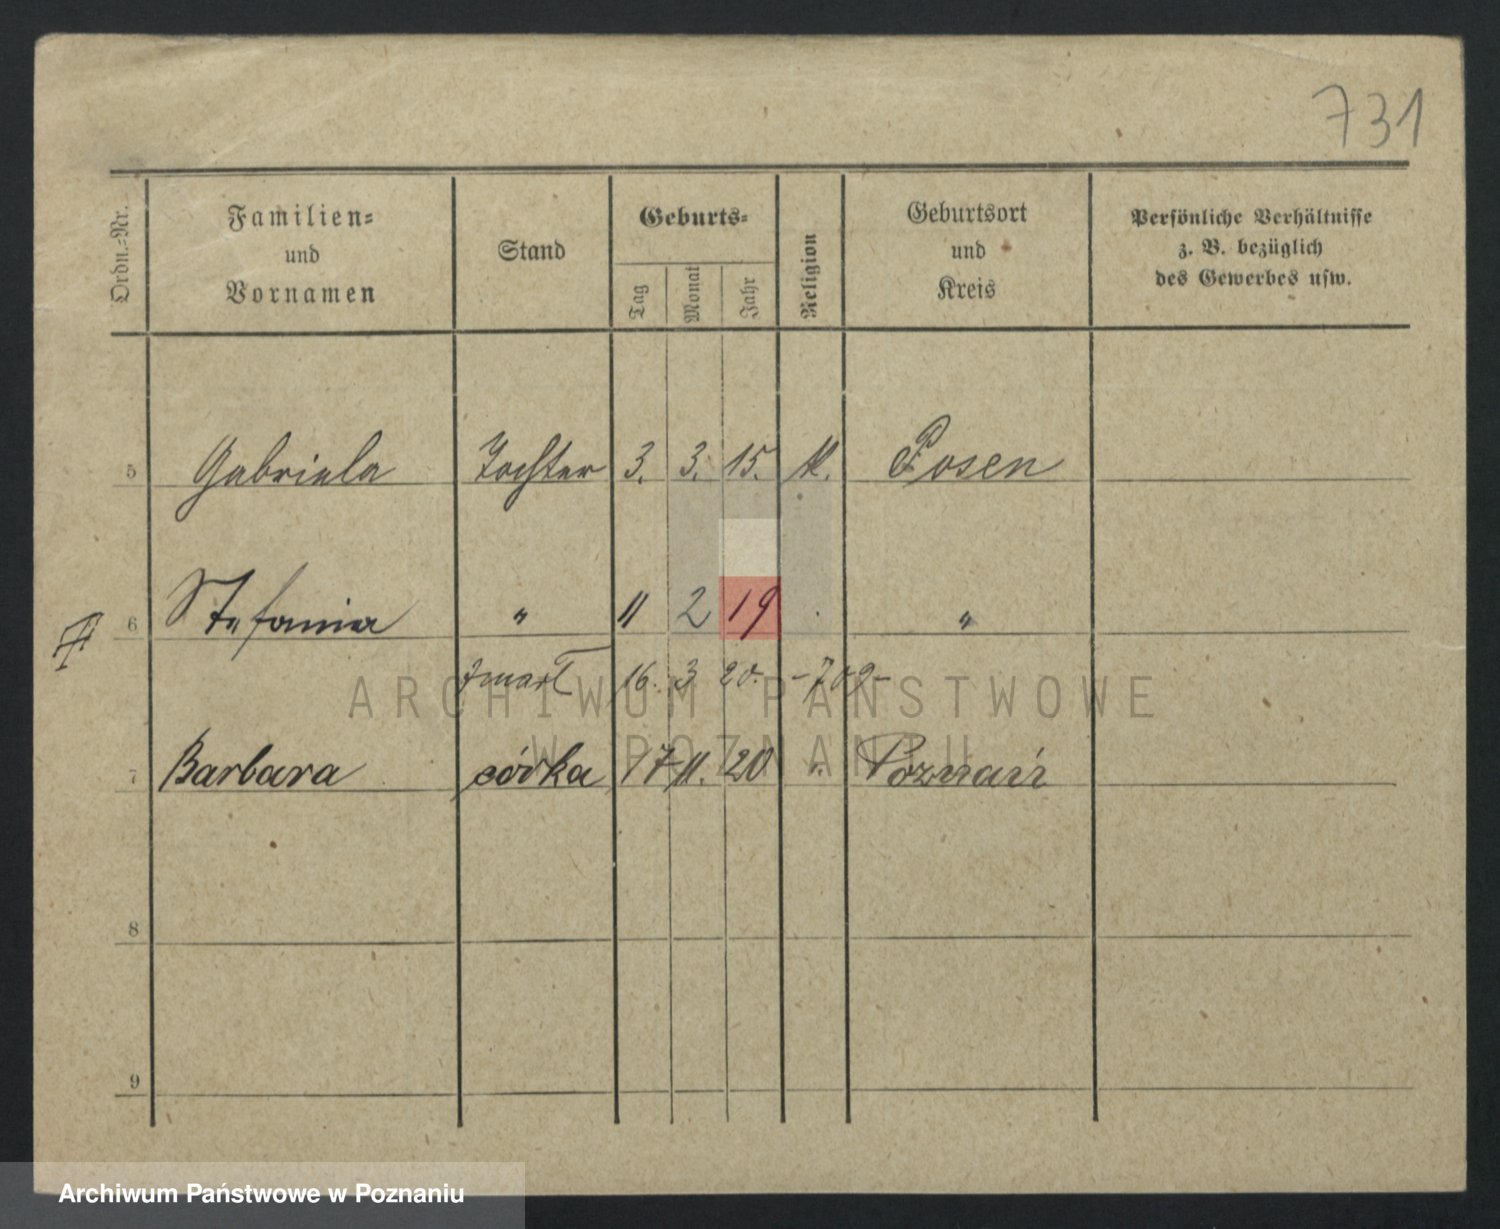 731
Ordn.-Nr.
Familien-
und
Vornamen
Stand
Geburts-
Tag
Monat
Jahr
Religion
Geburtsort
und
Kreis
Persönliche Verhältnisse
z. B. bezüglich
des Gewerbes usw.
5 Gabriela Tochter 3. 3. 15. k. Posen
6 Stefania " 11 2 19 . "
zmarł 16. 3 20. -709-
ARCHIWUM PAŃSTWOWE
W POZNANIU
7 Barbara córka 17 11. 20 " Poznań
8
9
Archiwum Państwowe w Poznaniu